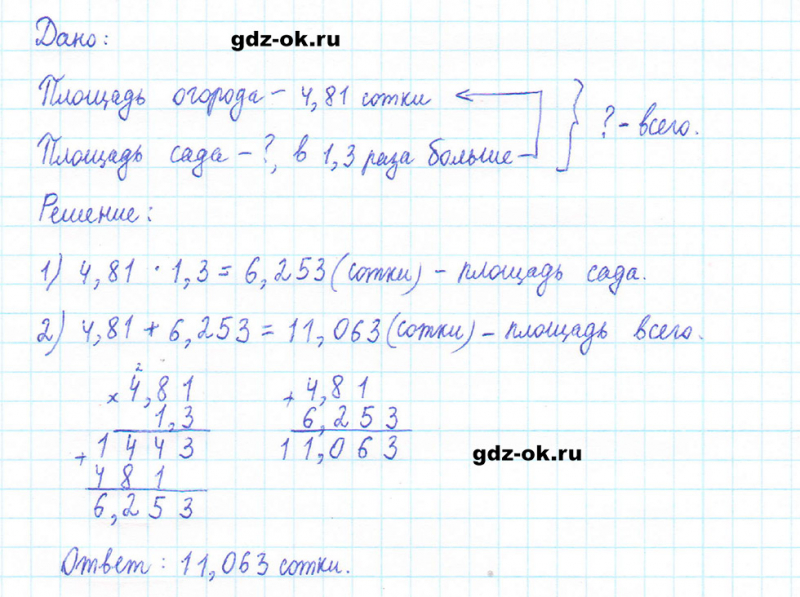 Дано: gdz-ok.ru
Площадь огорода - 4,81 сотки
? - всего.
Площадь сада - ?, в 1,3 раза больше
Решение:
1) 4,81 · 1,3 = 6,253 (сотки) - площадь сада.
2) 4,81 + 6,253 = 11,063 (сотки) - площадь всего.
2
× 4,81 + 4,81
1,3 6,253
+ 1443 11,063
481 gdz-ok.ru
6,253
Ответ: 11,063 сотки.